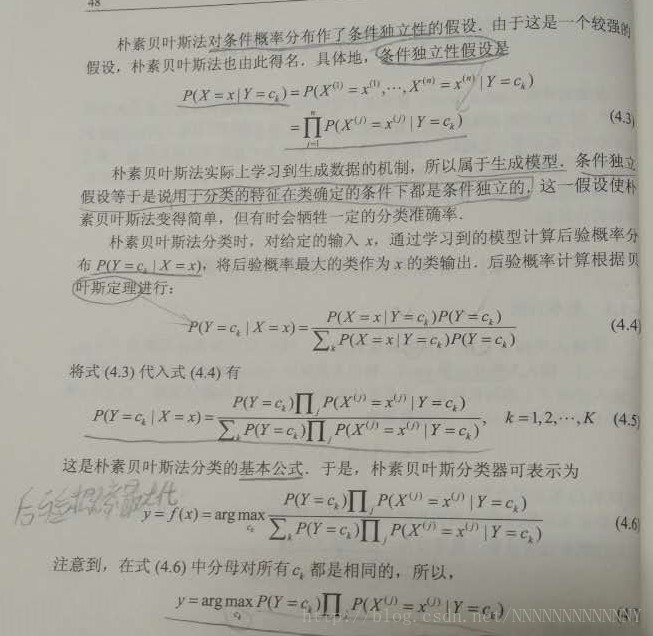 48
朴素贝叶斯法对条件概率分布作了条件独立性的假设. 由于这是一个较强的
假设, 朴素贝叶斯法也由此得名. 具体地, 条件独立性假设是
P(X = x | Y = c_k) = P(X^{(1)} = x^{(1)}, ⋯, X^{(n)} = x^{(n)} | Y = c_k)
= ∏_{j=1}^{n} P(X^{(j)} = x^{(j)} | Y = c_k) (4.3)
朴素贝叶斯法实际上学习到生成数据的机制, 所以属于生成模型. 条件独立
假设等于是说用于分类的特征在类确定的条件下都是条件独立的. 这一假设使朴
素贝叶斯法变得简单, 但有时会牺牲一定的分类准确率.
朴素贝叶斯法分类时, 对给定的输入 x, 通过学习到的模型计算后验概率分
布 P(Y = c_k | X = x), 将后验概率最大的类作为 x 的类输出. 后验概率计算根据贝
叶斯定理进行:
P(Y = c_k | X = x) = \frac{P(X = x | Y = c_k)P(Y = c_k)}{∑_k P(X = x | Y = c_k)P(Y = c_k)} (4.4)
将式 (4.3) 代入式 (4.4) 有
P(Y = c_k | X = x) = \frac{P(Y = c_k)∏_j P(X^{(j)} = x^{(j)} | Y = c_k)}{∑_k P(Y = c_k)∏_j P(X^{(j)} = x^{(j)} | Y = c_k)}, k = 1, 2, ⋯, K (4.5)
这是朴素贝叶斯法分类的基本公式. 于是, 朴素贝叶斯分类器可表示为
后验概率最大化
y = f(x) = arg max_{c_k} \frac{P(Y = c_k)∏_j P(X^{(j)} = x^{(j)} | Y = c_k)}{∑_k P(Y = c_k)∏_j P(X^{(j)} = x^{(j)} | Y = c_k)} (4.6
注意到, 在式 (4.6) 中分母对所有 c_k 都是相同的, 所以,
y = arg max_{c_k} P(Y = c_k)∏ P(X^{(j)} = x^{(j)} | Y = c_k)